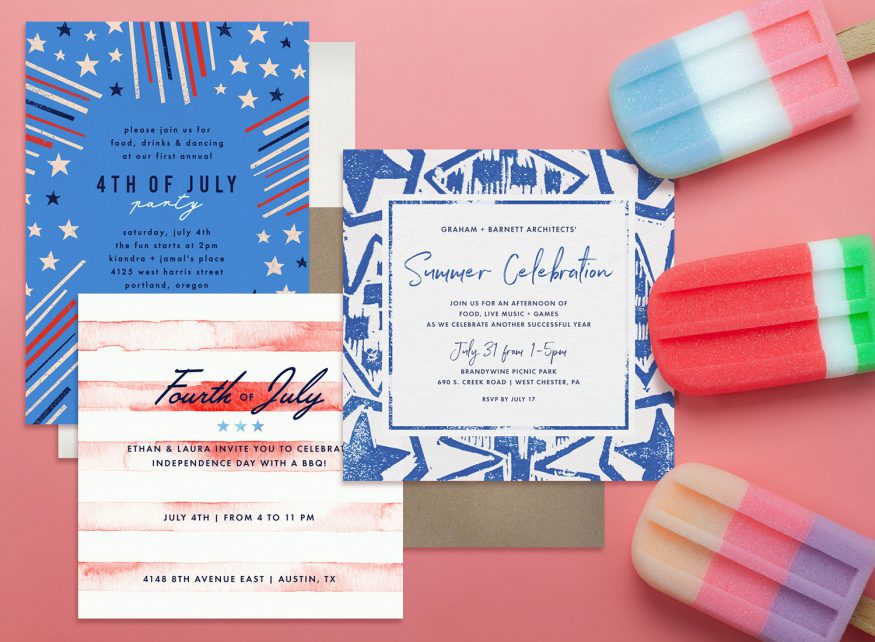 please join us for
food, drinks & dancing
at our first annual
4TH OF JULY
party
saturday, july 4th
the fun starts at 2pm
kiandra + jamal's place
4125 west harris street
portland, oregon
GRAHAM + BARNETT ARCHITECTS'
Summer Celebration
JOIN US FOR AN AFTERNOON OF
FOOD, LIVE MUSIC + GAMES
AS WE CELEBRATE ANOTHER SUCCESSFUL YEAR
July 31 from 1-5pm
BRANDYWINE PICNIC PARK
690 S. CREEK ROAD | WEST CHESTER, PA
RSVP BY JULY 17
Fourth OF July
ETHAN & LAURA INVITE YOU TO CELEBRAT
INDEPENDENCE DAY WITH A BBQ!
JULY 4TH | FROM 4 TO 11 PM
4148 8TH AVENUE EAST | AUSTIN, TX